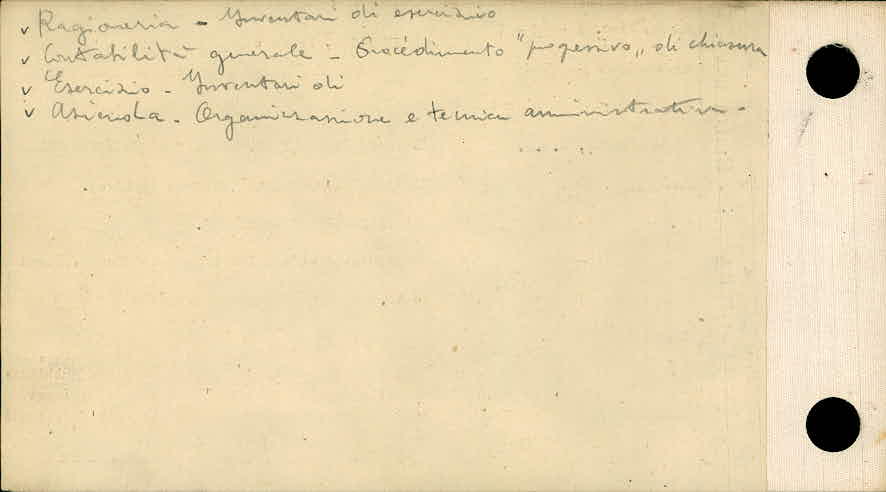 v Ragioneria - Inventari di esercizio
v Contabilità generale - Procedimento "progressivo„ di chiusura
v Esercizio - Inventari di
v Azienda - Organizzazione e tecnica amministrativa -
. . . . .